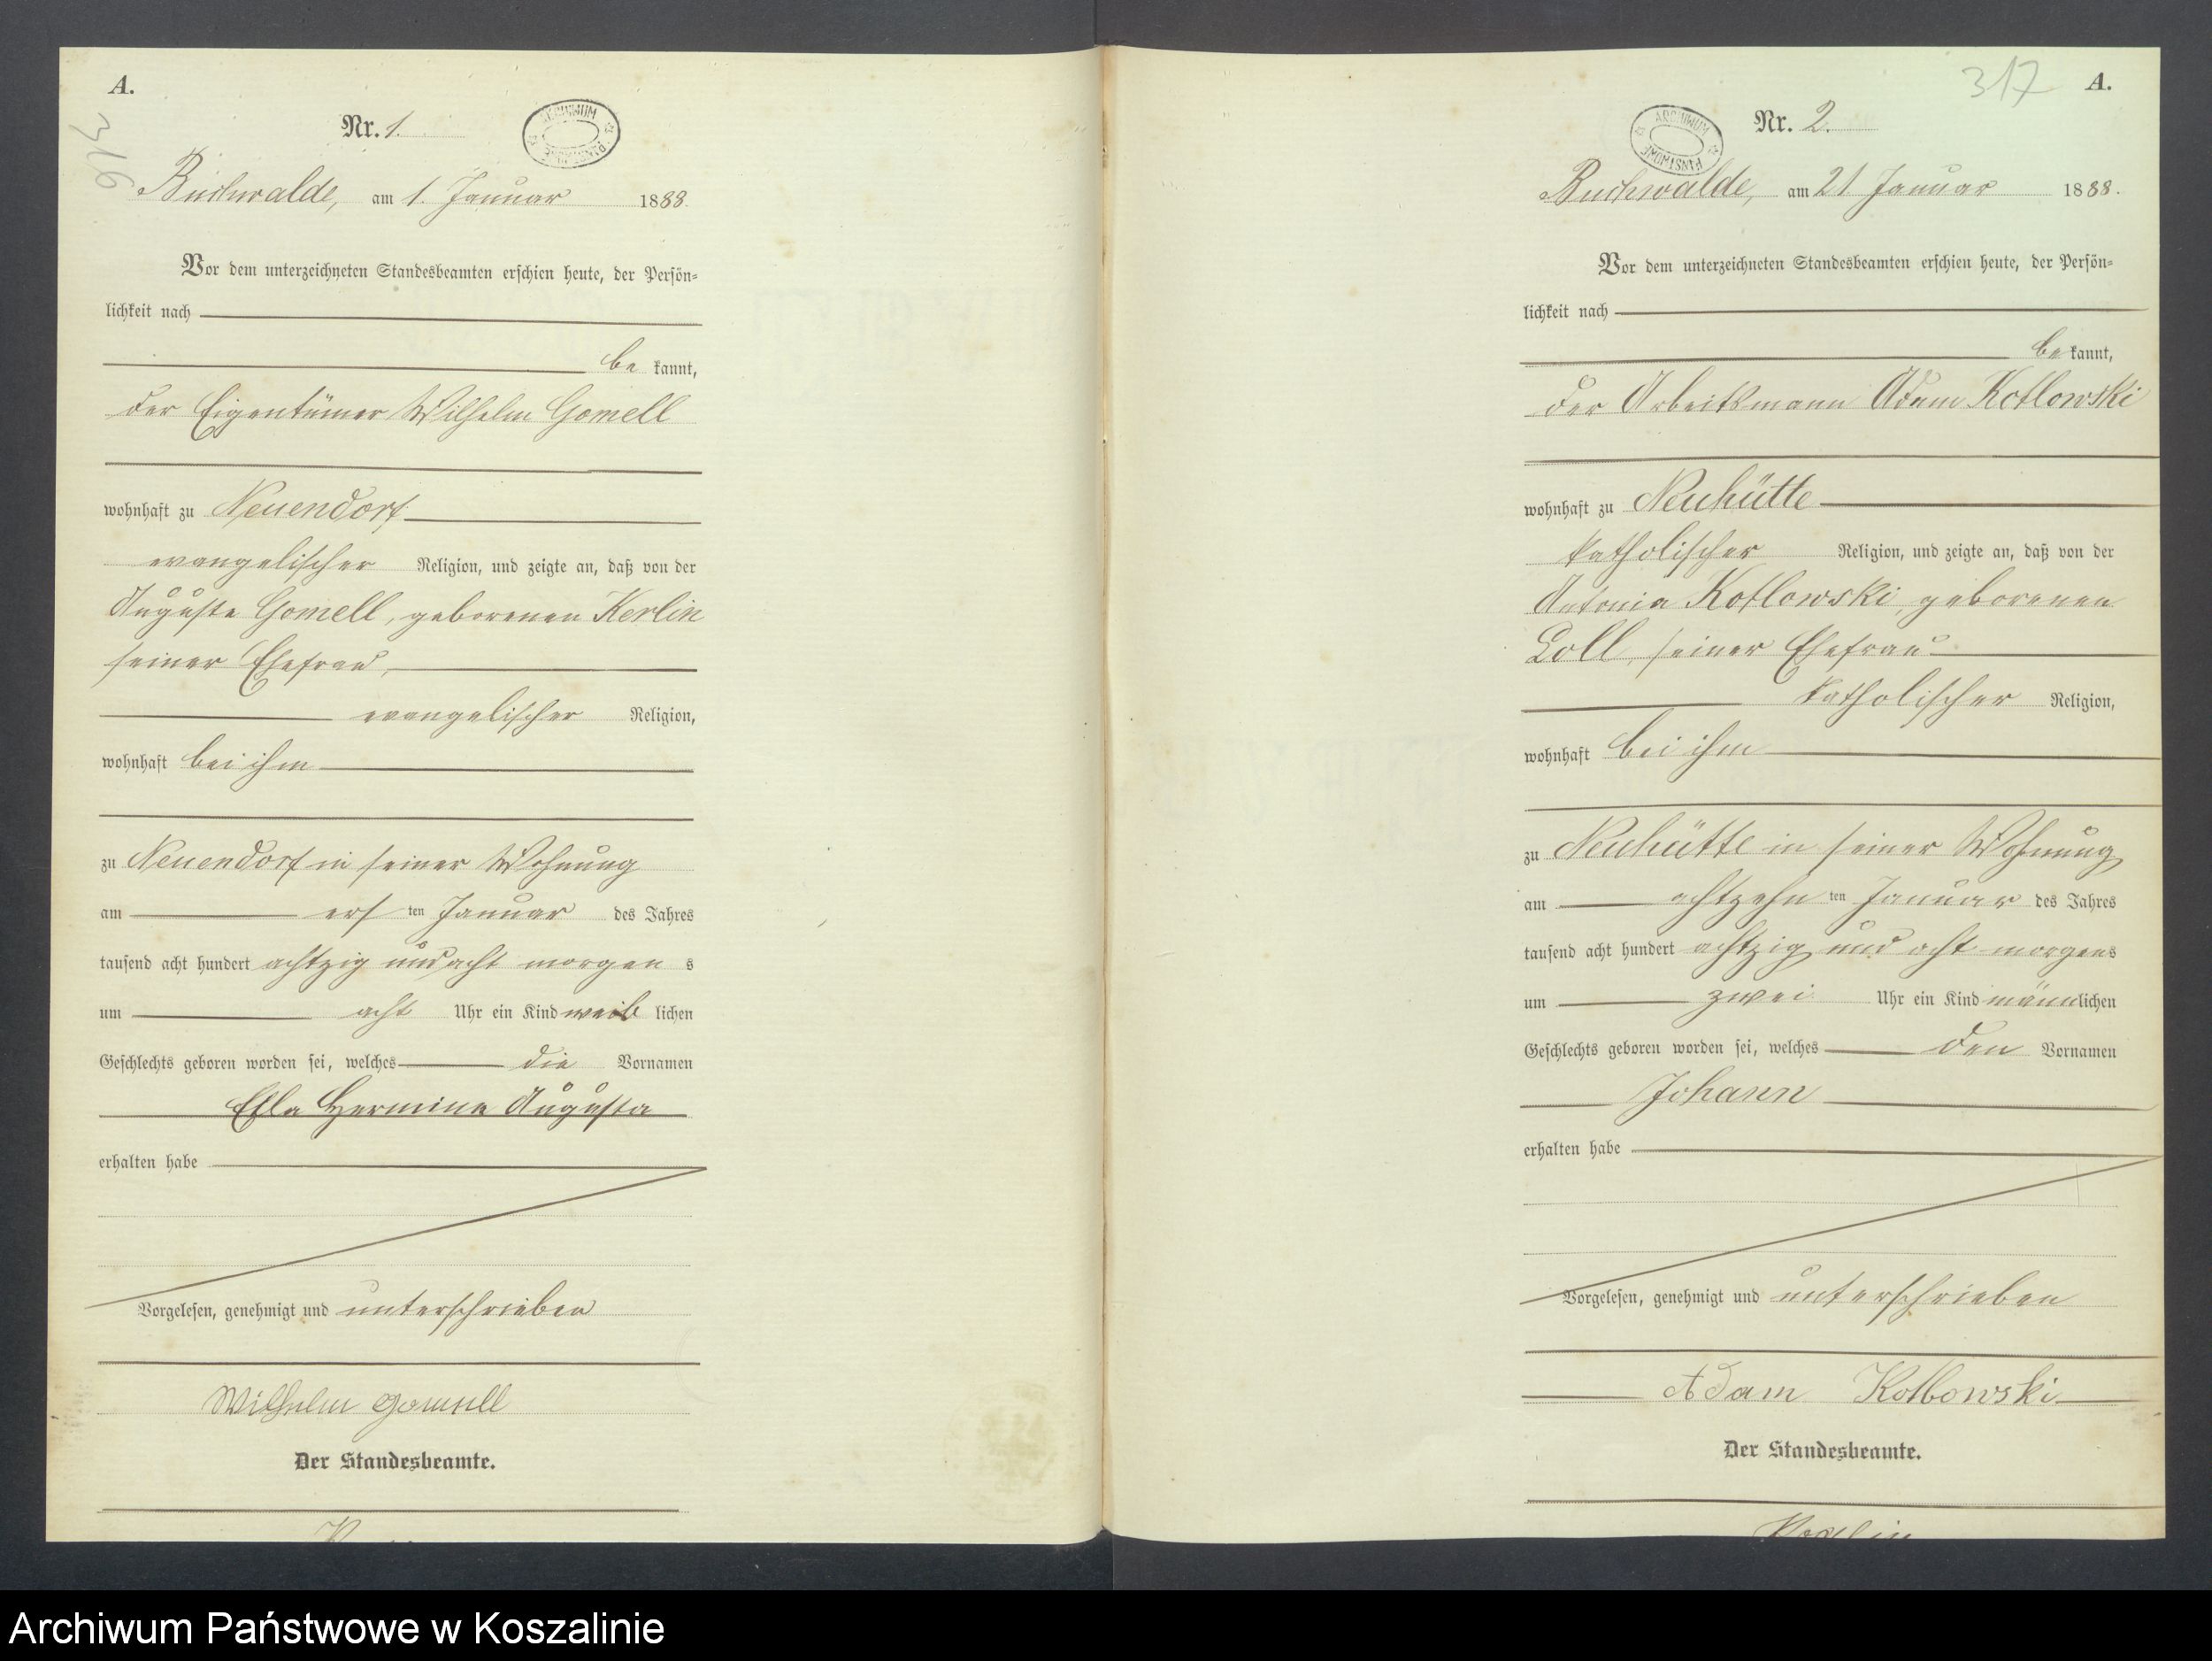 A.
316
Nr. 1.
ARCHIWUM PAŃSTWOWE
Buchwalde, am 1. Januar 1888.
Vor dem unterzeichneten Standesbeamten erschien heute, der Persön=
lichkeit nach
be kannt,
der Eigentümer Wilhelm Gomell
wohnhaft zu Neuendorf
evangelischer Religion, und zeigte an, daß von der
Auguste Gomell, geborenen Kerlin
seiner Ehefrau,
evangelischer Religion,
wohnhaft bei ihm
zu Neuendorf in seiner Wohnung
am ers ten Januar des Jahres
tausend acht hundert achtzig und acht morgen s
um acht Uhr ein Kind weib lichen
Geschlechts geboren worden sei, welches die Vornamen
Ella Hermine Augusta
erhalten habe
Vorgelesen, genehmigt und unterschrieben
Wilhelm Gomell
Der Standesbeamte.
317
A.
Nr. 2.
ARCHIWUM PAŃSTWOWE
Buchwalde, am 21 Januar 1888.
Vor dem unterzeichneten Standesbeamten erschien heute, der Persön=
lichkeit nach
be kannt,
der Arbeitsmann Adam Kotlowski
wohnhaft zu Neuhütte
katholischer Religion, und zeigte an, daß von der
Antonia Kotlowski, geborenen
Loll, seiner Ehefrau
katholischer Religion,
wohnhaft bei ihm
zu Neuhütte in seiner Wohnung
am achtzehn ten Januar des Jahres
tausend acht hundert achtzig und acht morgens
um zwei Uhr ein Kind männlichen
Geschlechts geboren worden sei, welches den Vornamen
Johann
erhalten habe
Vorgelesen, genehmigt und unterschrieben
Adam Kotbowski
Der Standesbeamte.
Archiwum Państwowe w Koszalinie